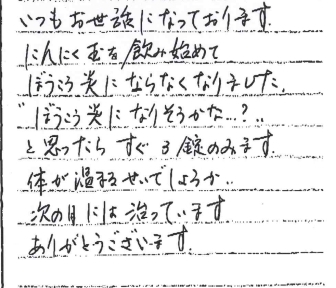 いつもお世話になっております。
にんにく玉を飲み始めて
ぼうこう炎にならなくなりました。
"ぼうこう炎になりそうかな…?"
と思ったらすぐ3錠のみます。
体が温まるせいでしょうか..
次の日には治っています
ありがとうございます。